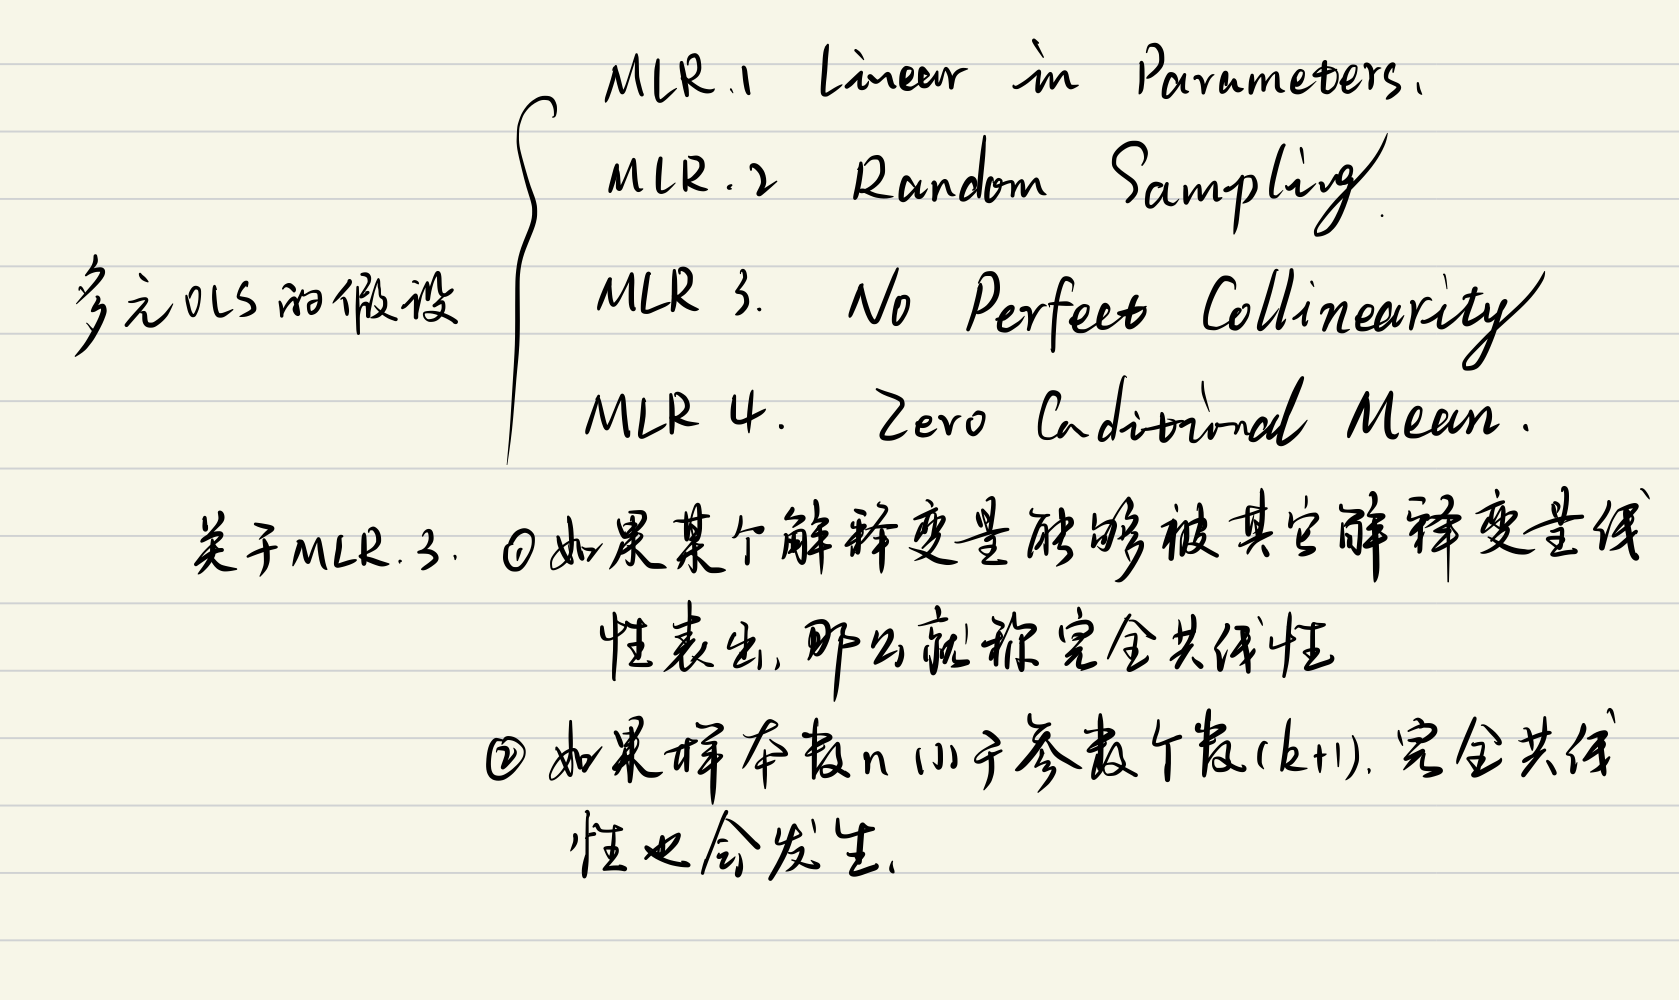 MLR.1 Linear in Parameters.
MLR.2 Random Sampling.
多元OLS的假设
MLR 3. No Perfect Collinearity
MLR 4. Zero Conditional Mean.
关于MLR.3. ①如果某个解释变量能够被其它解释变量线
性表出,那么就称完全共线性
②如果样本数n小于参数个数(k+1).完全共线
性也会发生.